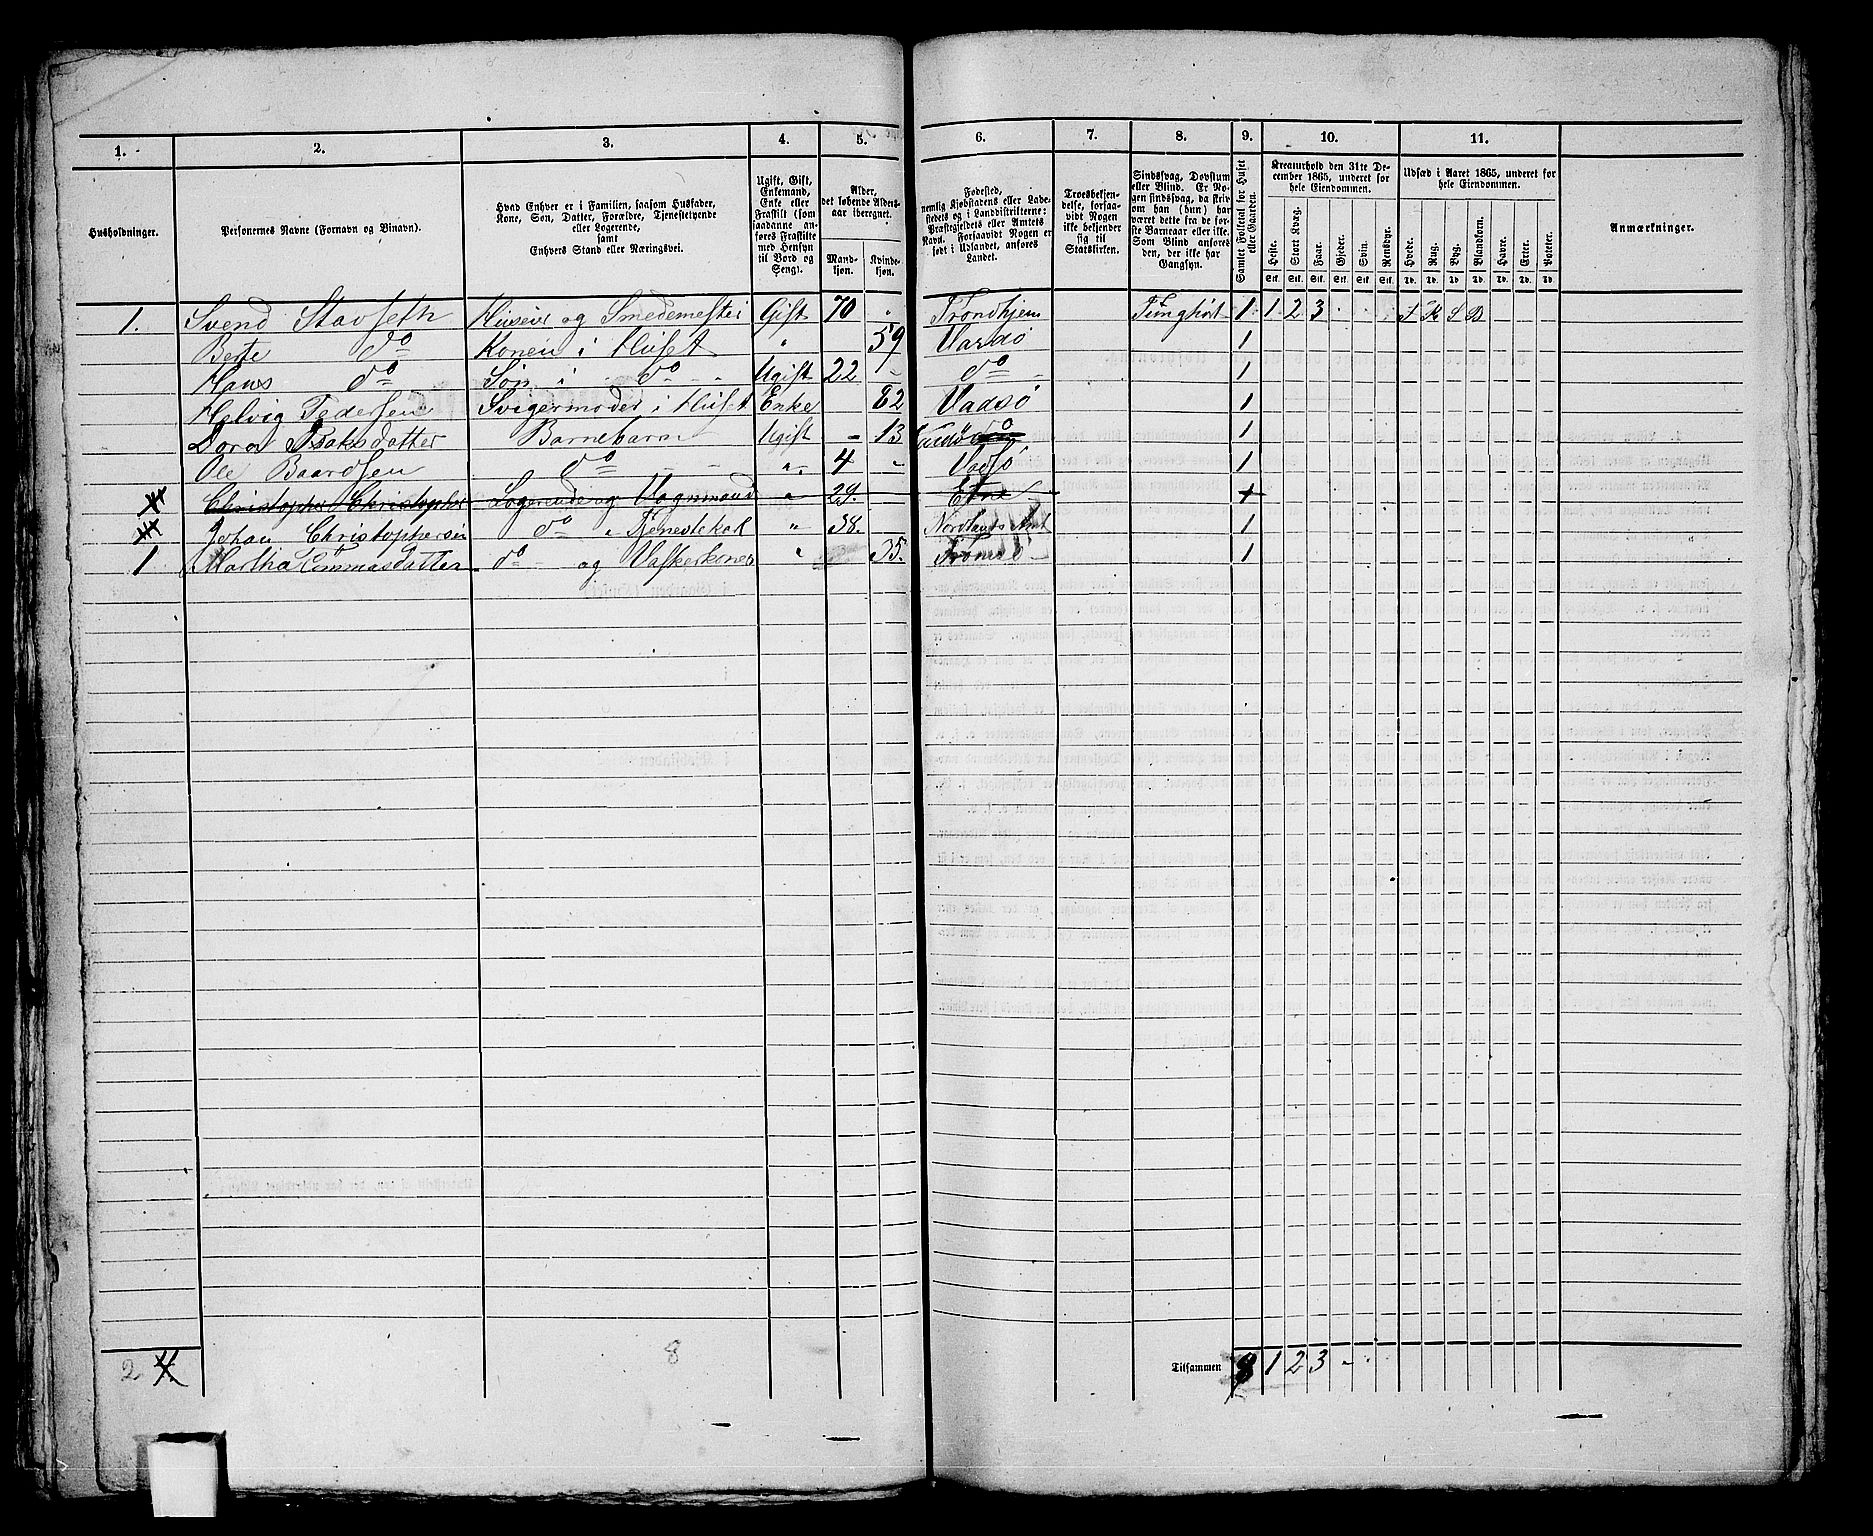 1. 2. 3. 4. 5. 6. 7. 8. 9. 10. 11.
Husholdninger.
Personernes Navne (Fornavn og Binavn).
Hvad Enhver er i Familien, saasom Husfader,
Kone, Søn, Datter, Forældre, Tjenestetyende
eller Logerende,
samt
Enhvers Stand eller Næringsvei.
Ugift, Gift,
Enkemand,
Enke eller
Fraskilt (som
saadanne an-
føres Fraskilte
med Hensyn
til Bord og
Seng).
Alder,
det løbende Alders-
aar iberegnet.
Mand-
kjøn.
Kvinde-
kjøn.
Fødested,
nemlig Kjøbstadens eller Lade-
stedets og i Landdistrikterne:
Præstegjeldets eller Amtets
Navn. Forsaavidt Nogen er
født i Udlandet, anføres
Landet.
Troesbekjen-
delse, forsaa-
vidt Nogen
ikke bekjender
sig til
Statskirken.
Sindssvag, Døvstum
eller Blind. Er No-
gen sindssvag, da skriv
om han (hun) har
været dette fra de før-
ste Barneaar eller ikke.
Som Blind anføres
den, der ikke har
Gangsyn.
Samlet Folketal for Huset
eller Gaarden.
Kreaturhold den 31te De-
cember 1865, underet for
hele Eiendommen.
Heste. Stort Kvæg. Faar. Gjeder. Svin. Rensdyr.
Stk. Stk. Stk. Stk. Stk. Stk.
Udsæd i Aaret 1865, underet for
hele Eiendommen.
Hvede. Rug. Byg. Blandkorn. Havre. Erter. Poteter.
Td. Td. Td. Td. Td. Td. Td.
Anmærkninger.
1. Svend Stavseth Huseier og Smedemester Gift 70 " Trondhjem Tunghørt 1 1 2 3
Berte do Konen i Huset " 59 Vardø 1
Hans do Søn i do Ugift 22 - do - 1
Helvig Pedersen Svigermoder i Huset Enke 82 Vadsø 1
Dora Isaksdatter Barnebarn Ugift - 13 do 1
Ole Baardsen do " 4 - Vadsø 1
Christopher Christopher Logerende og Vognmand " 29. Etne 1
Johan Christophersen do " Tjenestekal " 38. Nordlands Amt 1
1 Martha Tommasdatter do og Vaskerkone " 35. Tromsø 1
2 4 8 Tilsammen 8 1 2 3 -